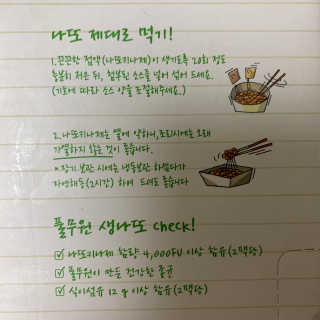 나또 제대로 먹기!
1. 끈끈한 점액(나또키나제)이 생기도록 20회 정도
충분히 저은 뒤, 첨부된 소스를 넣어 섞어 드세요.
(기호에 따라 소스 양을 조절해주세요.)
2. 나또키나제는 열에 약하니, 조리시에는 오래
가열하지 않는 것이 좋습니다.
* 장기 보관 시에는 냉동보관 하셨다가
자연해동(2시간) 하여 드셔도 좋습니다
풀무원 생나또 check!
나또키나제 함량 4,000FU 이상 함유(2팩당)
풀무원이 만든 건강한 종균
식이섬유 12g 이상 함유(2팩당)